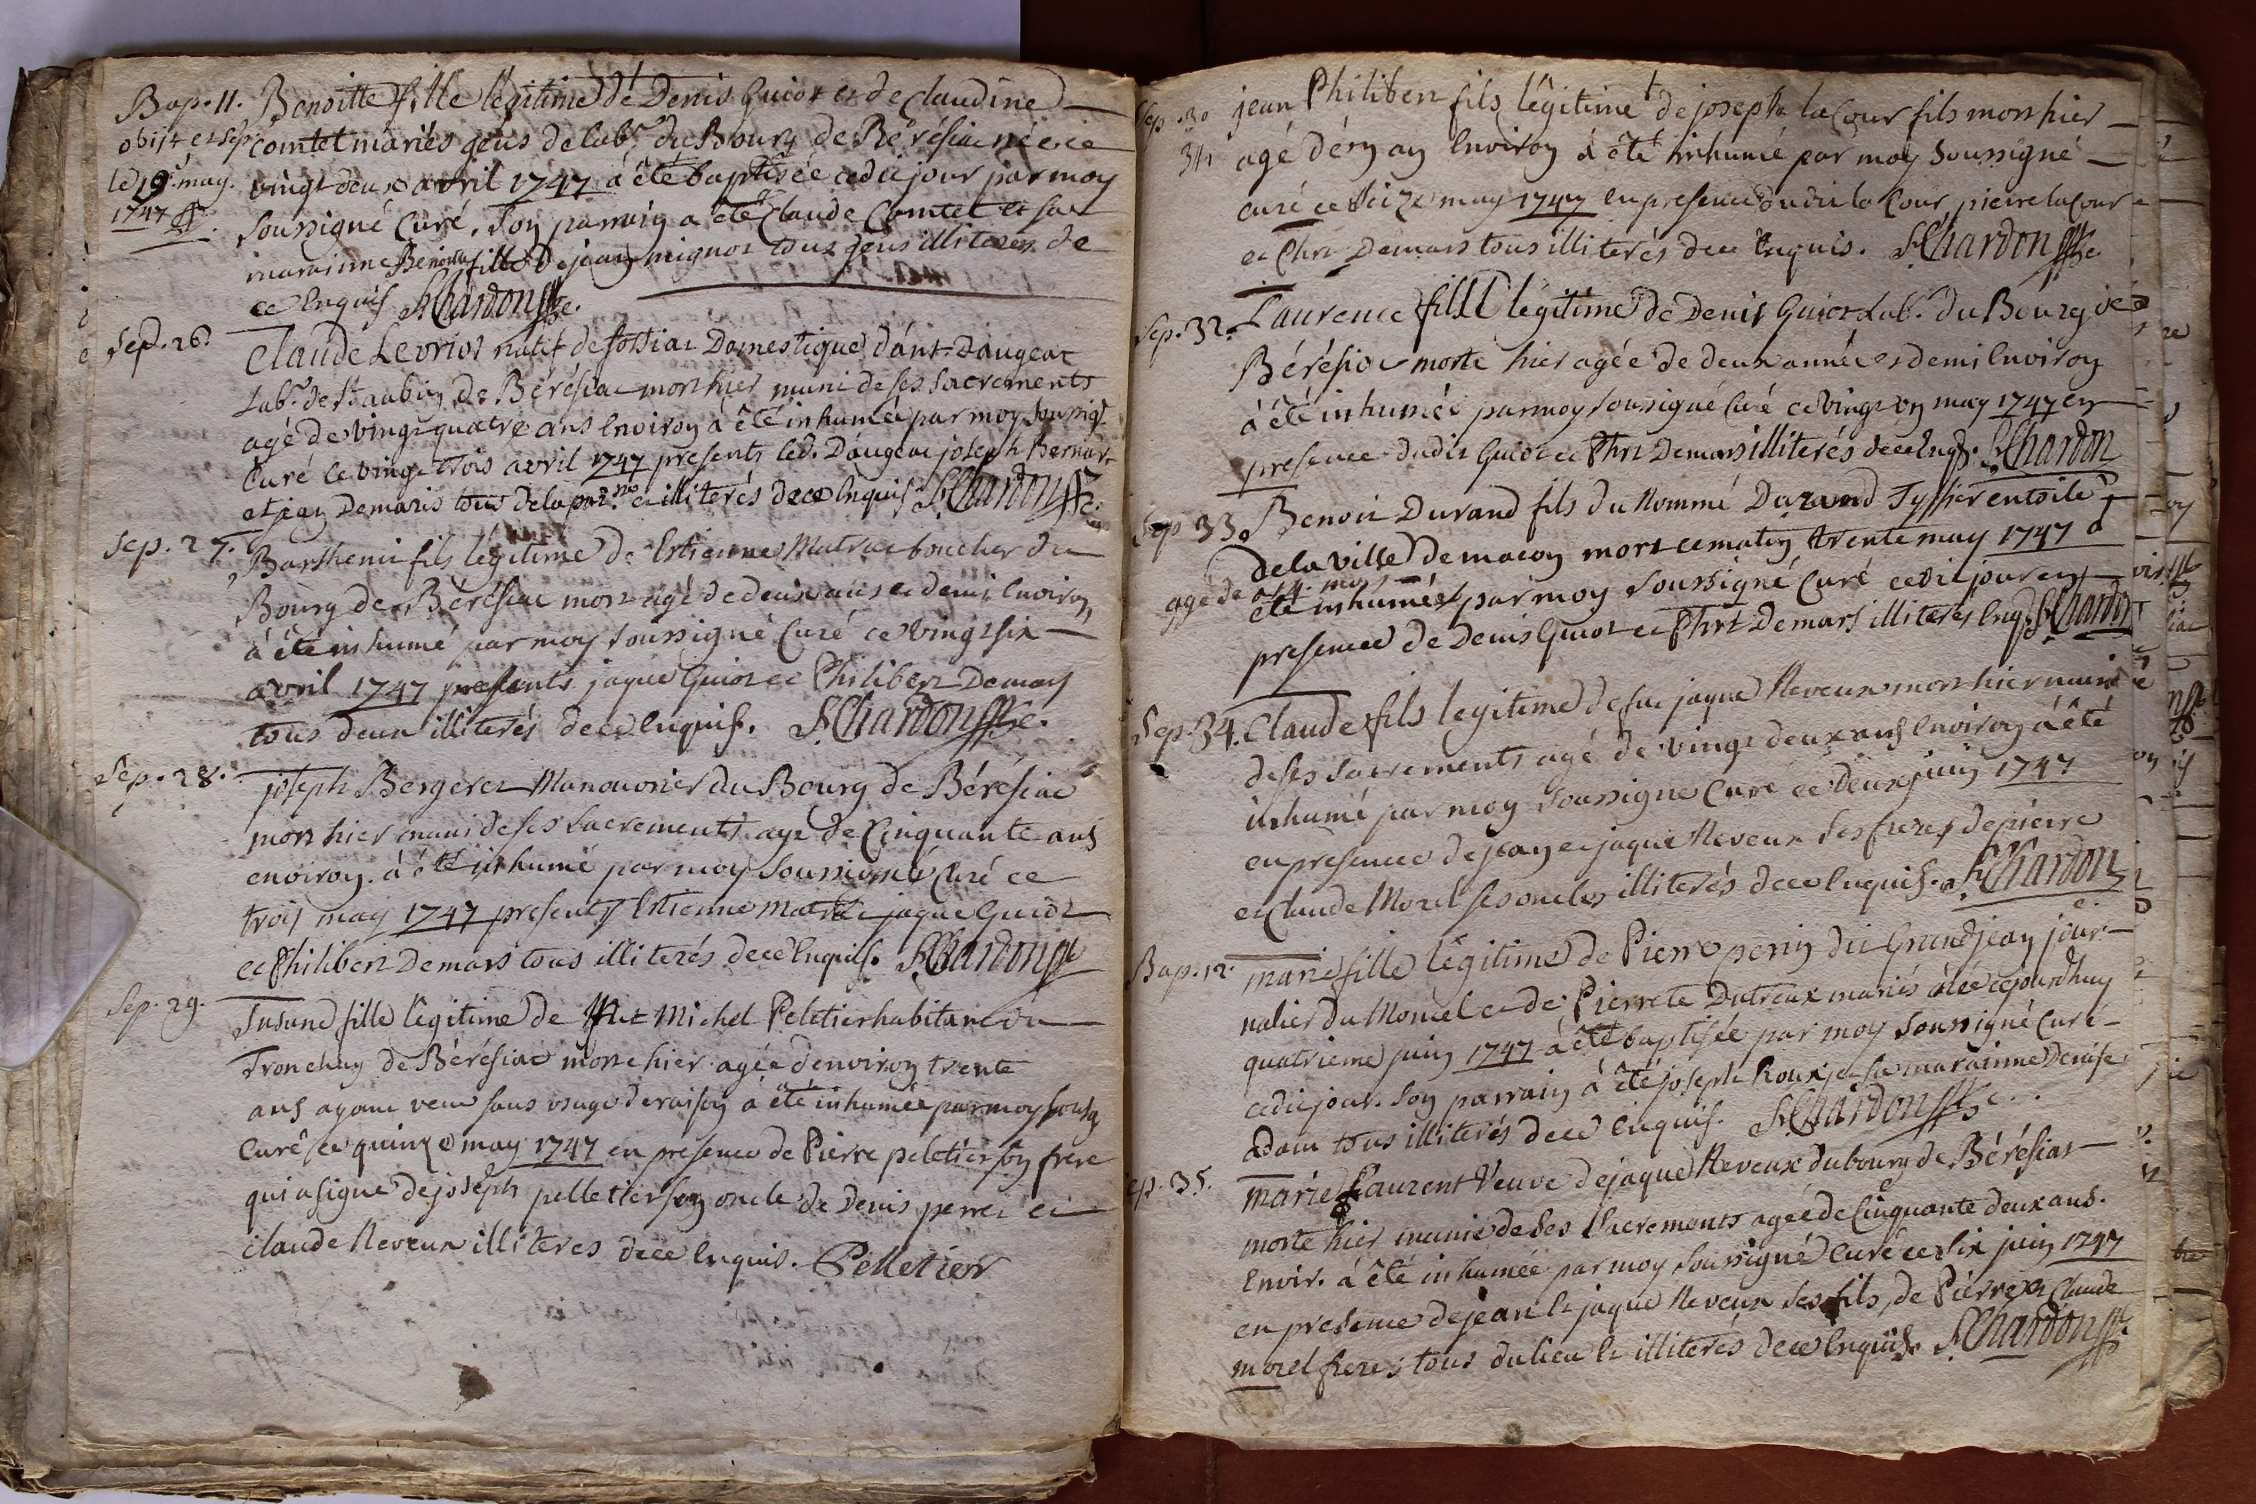 Bap. 11. Benoitte fille légitime de Denis Guiot et de Claudine
obiit et sep. Comtet mariés gens de lab.r du Bourg de Bérésiac née ce
le 19 may. vingt deux avril 1747 à été baptisée cedit jour par moy
1747 soussigné Curé. Son parrain a été Claude Comtet et sa
marainne Benoitte fille de jean mignot tous gens illiterés de
ce Enquis J. Chardon
Sep. 26. Claude Levriot natif de Domestique d'ant. Daugeat
Lab.r de St aubin de Bérésiac mort hier muni de ses sacrements
agé de vingt quatre ans Environ à été inhumé par moy soussig.
Curé ce vingt trois avril 1747 presents led. Daugeat joseph Bernard
et jean Demaris tous de la et illiterés de ce Enquis J. Chardon
Sep. 27. Barthemi fils légitime de Estienne Matrat boucher du
Bourg de Bérésiac mort agé de deux ans et demi Environ
à été inhumé par moy soussigné Curé ce vingt six
avril 1747 presents jaque Guiot et Philibert Demars
tous deux illiterés de ce Enquis. J. Chardon
Sep. 28. joseph Bergeret Manouvrier du Bourg de Bérésiac
mort hier muni de ses sacrements agé de Cinquante ans
environ. à été inhumé par moy soussigné Curé ce
trois may 1747 presents Estienne Matrat jaque Guiot
et Philibert Demars tous illiterés de ce Enquis. J. Chardon
Sep. 29. Susane fille légitime de Michel Peletier habitant du
Tronchay de Bérésiac morte hier agée d'environ trente
ans ayant vecu sans usage de raison à été inhumée par moy soussig
Curé ce quinze may 1747 en presence de Pierre peletier son frere
qui a signé de joseph pelletier son oncle de Denis perret et
Claude Neveux illiteres de ce Enquis. Pelletier
Sep. 30 jean Philibert fils légitime de joseph la Cour fils mort hier
agé d'én an Environ à été inhumé par moy soussigné
curé ce seize may 1747 en presence dudit la Cour, pierre la Cour
et Phrt Demars tous illiterés de ce Enquis. J. Chardon
Sep. 32. Laurence fille légitime de Denis Guiot Lab.r du Bourg de
Bérésiac morte hier agée de deux année et demi Environ
à été inhumée par moy soussigné Curé ce vingt un may 1747 en
presence dudit Guiot et Phrt Demars illiterés de ce Enq. J. Chardon
Sep. 33. Benoit Durand fils du Nommé Durand Tyssier en toile
de la ville de macon mort ce matin trente may 1747 à
agé de mois
été inhumé par moy soussigné Curé cedit jour en
presence de Denis Guiot et Phrt Demars illiterés Enq. J. Chardon
Sep. 34. Claude fils legitime de feu jaque Neveux mort hier muni
de ses sacrements agé de vingt deux ans Environ à été
inhumé par moy soussigné Curé ce deux juin 1747
en presence de jean et jaque Neveux ses freres de pierre
et Claude Morel ses oncles illiterés de ce Enquis. J. Chardon
Bap. 12. marie fille légitime de Pierre perrin dit Grandjean jour-
nalier du Moncel et de Pierrete Dutreux mariés née ce jourdhuy
quatrieme juin 1747 à été baptisée par moy soussigné Curé
cedit jour. Son parrain à été joseph Roux et sa marainne Denise
adam tous illiterés de ce Enquis. J. Chardon
ep. 35. marie Laurent Veuve de jaque Neveux du bourg de Bérésiat
morte hier munie de ses sacrements agée de Cinquante deux ans.
Envir. à été inhumée par moy soussigné Curé ce six juin 1747
en presence de jean et jaque Neveux ses fils, de Pierre et Claude
morel freres tous du lieu et illiterés de ce Enquis J. Chardon